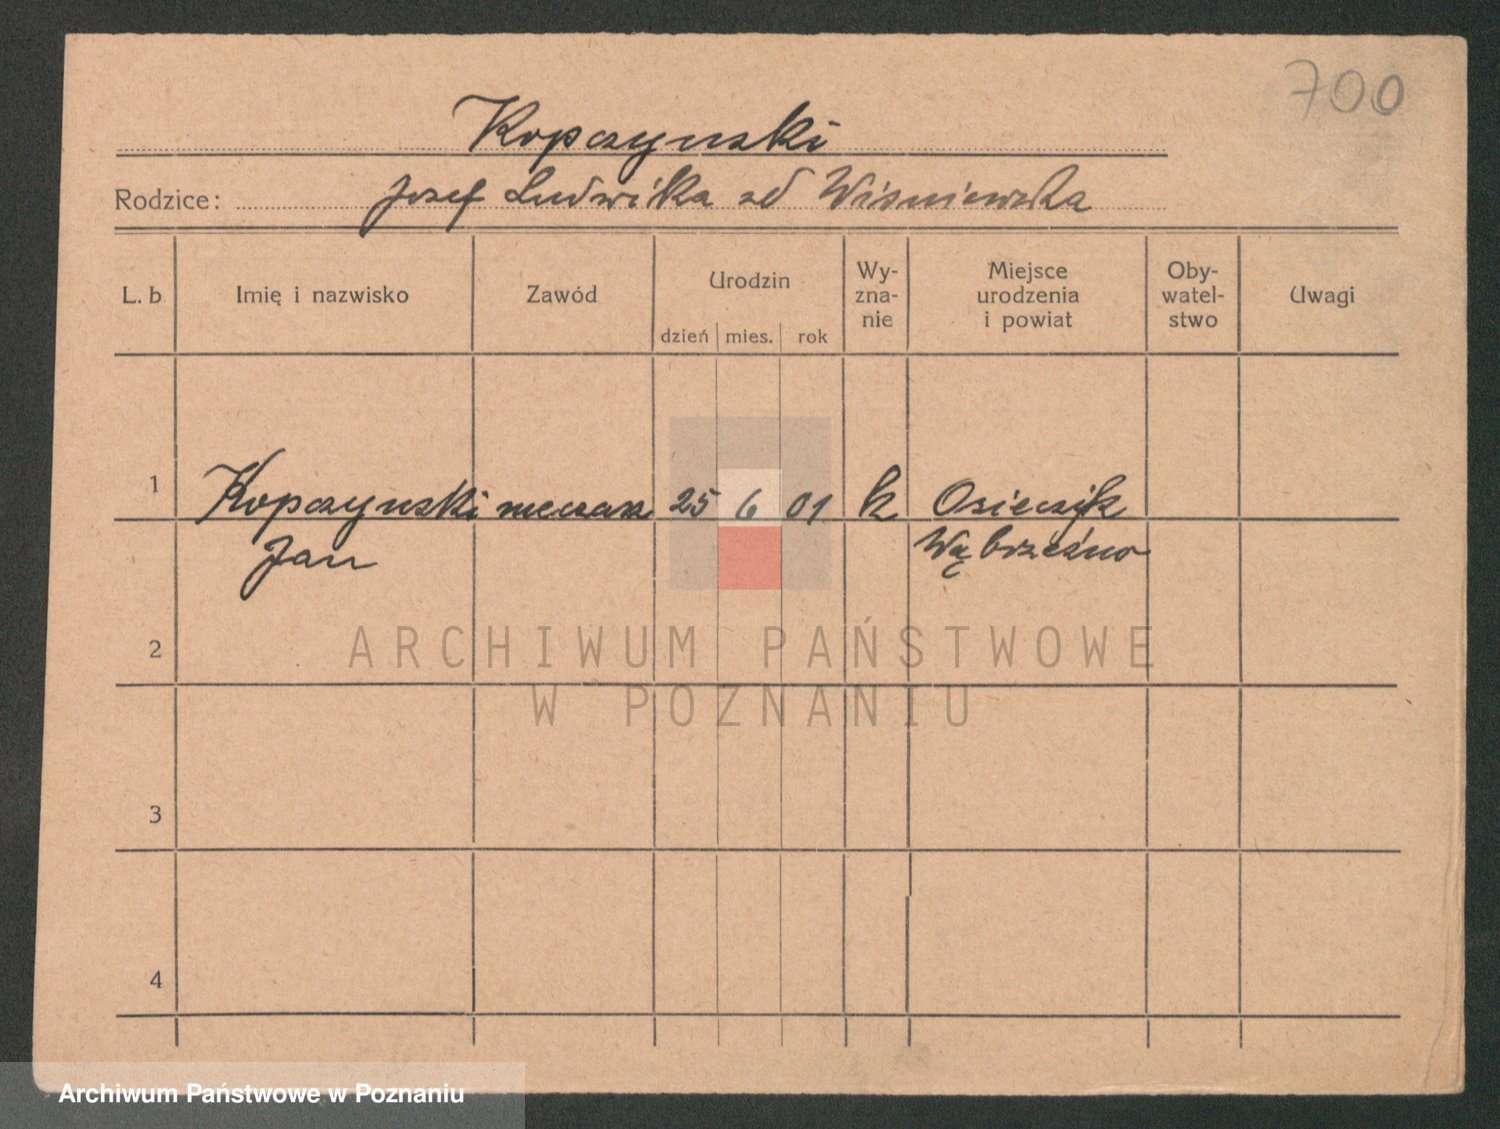 700
Kopczynski
Rodzice: Josef Ludwika zd Wiśniewska
L. b Imię i nazwisko Zawód Urodzin Wy-zna-nie Miejsce urodzenia i powiat Oby-watel-stwo Uwagi
dzień mies. rok
1 Kopczynski 25 6 01 k Osieczek
Jan Wąbrzeźno
2
ARCHIWUM PAŃSTWOWE
W POZNANIU
3
4
Archiwum Państwowe w Poznaniu